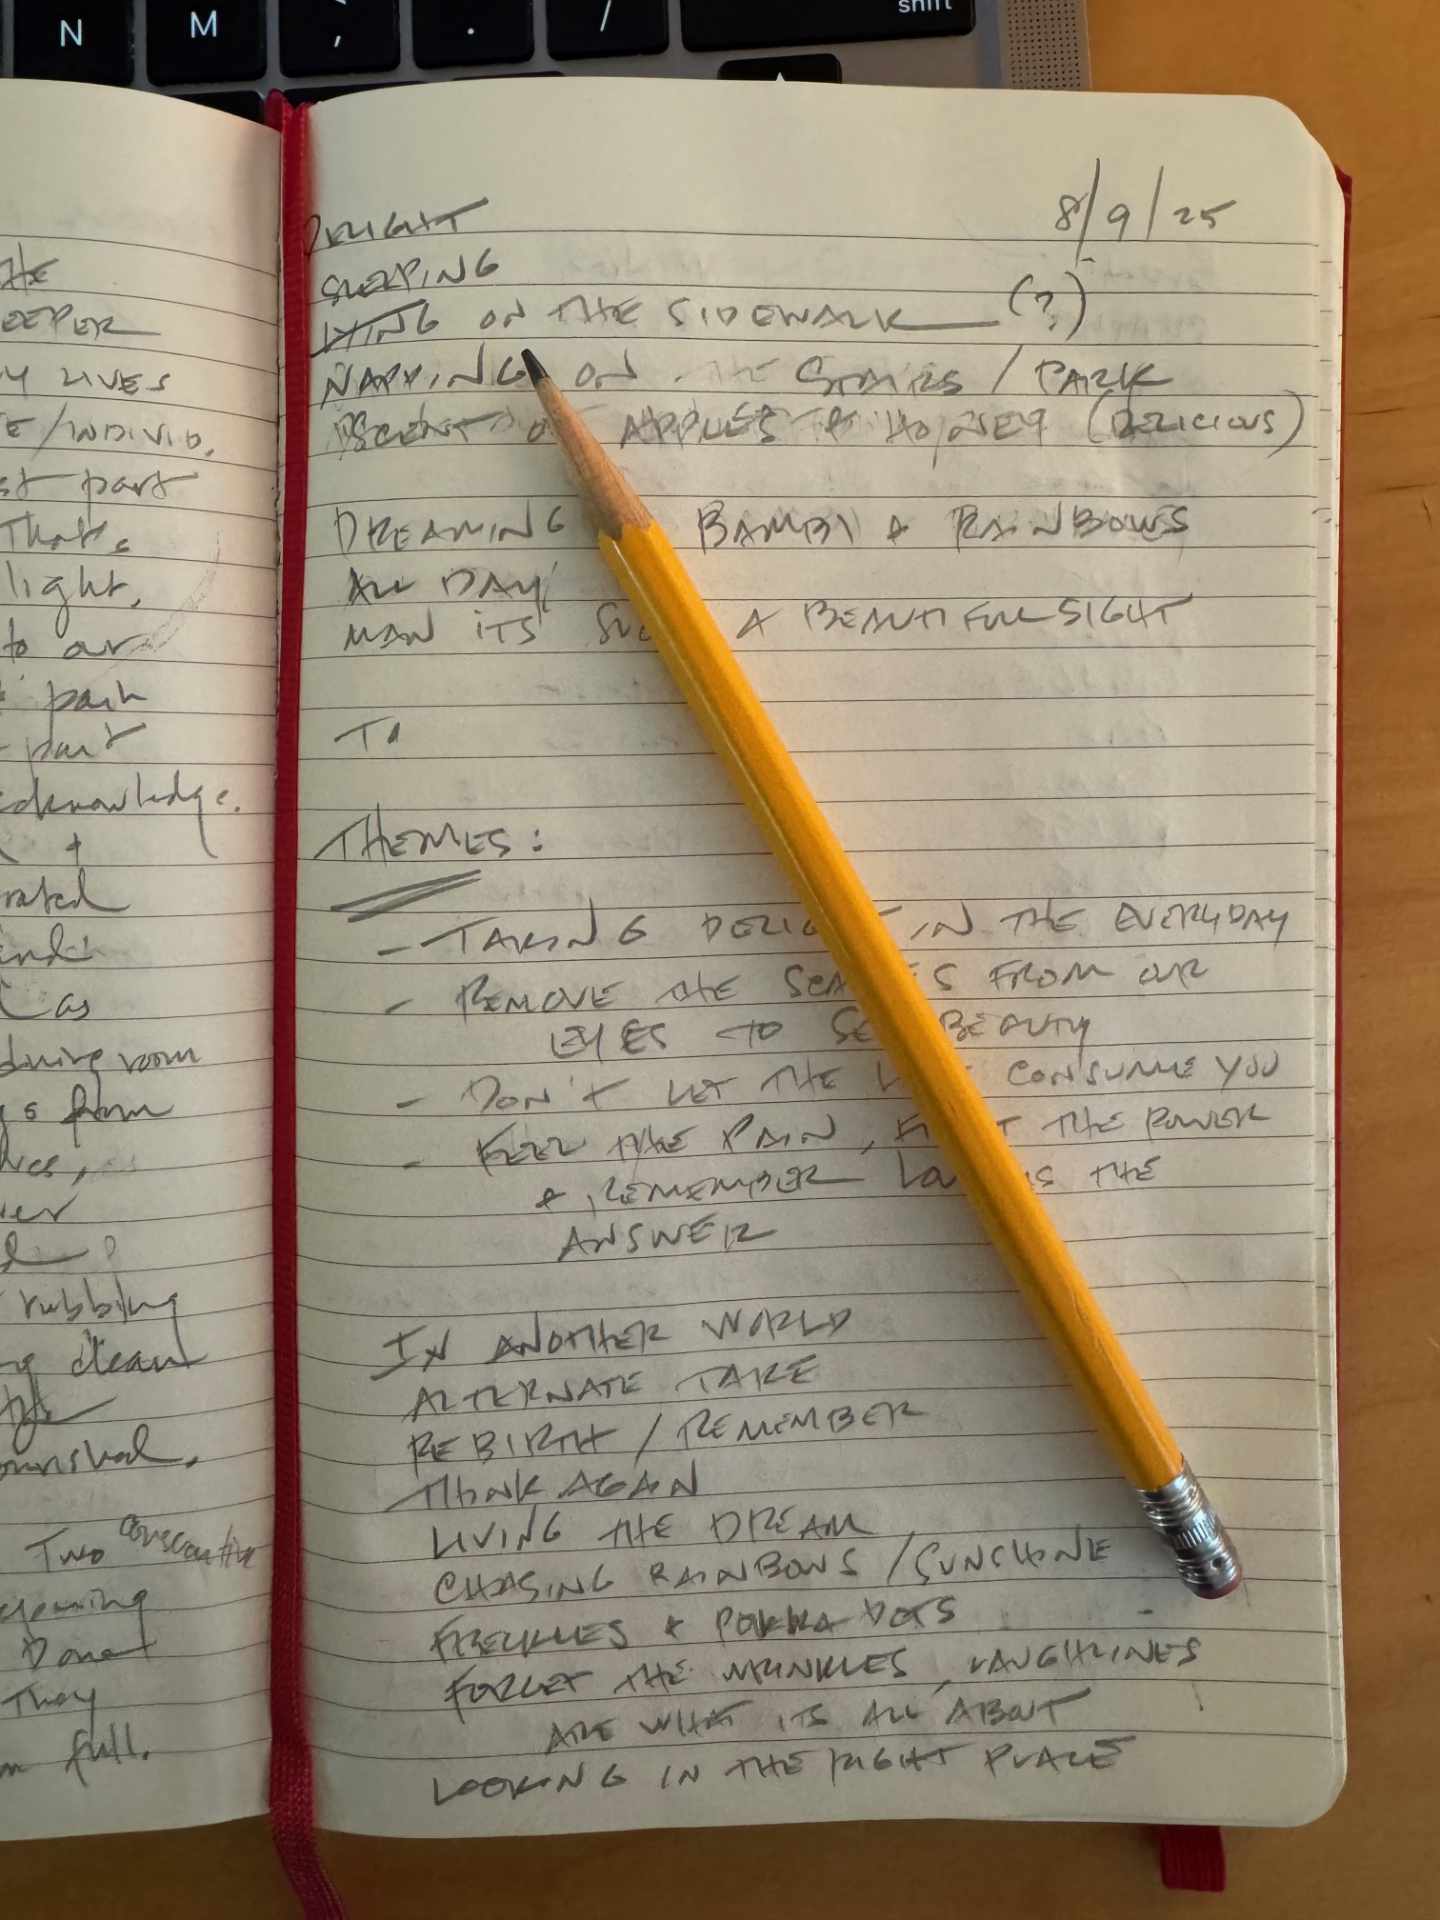 N M , . / shift
THE
EEPER
MY LIVES
TE/INDIVID.
st part
That's
light.
to our
path
part
acknowledge.
+
rated
as
dining room
gs from
ves,
rubbing
ng clean
Two consecutive
Done
They
full.
DELIGHT 8/9/25
SLEEPING
LYING ON THE SIDEWALK (?)
NAPPING ON THE STAIRS / PARK
SCENT OF APPLES & HONEY (DELICIOUS)
DREAMING BAMBI & RAINBOWS
ALL DAY
MAN ITS SUC A BEAUTIFUL SIGHT
TA
THEMES:
- TAKING DELIG IN THE EVERYDAY
- REMOVE THE SCA S FROM OUR
EYES TO SE BEAUTY
- DON'T LET THE L CONSUME YOU
- FEEL THE PAIN, FI T THE POWER
& REMEMBER LO IS THE
ANSWER
IN ANOTHER WORLD
ALTERNATE TAKE
REBIRTH / REMEMBER
THINK AGAIN
LIVING THE DREAM
CHASING RAINBOWS / SUNSHINE
FRECKLES & POLKA DOTS
FORGET THE WRINKLES, LAUGHLINES
ARE WHAT ITS ALL ABOUT
LOOKING IN THE RIGHT PLACE